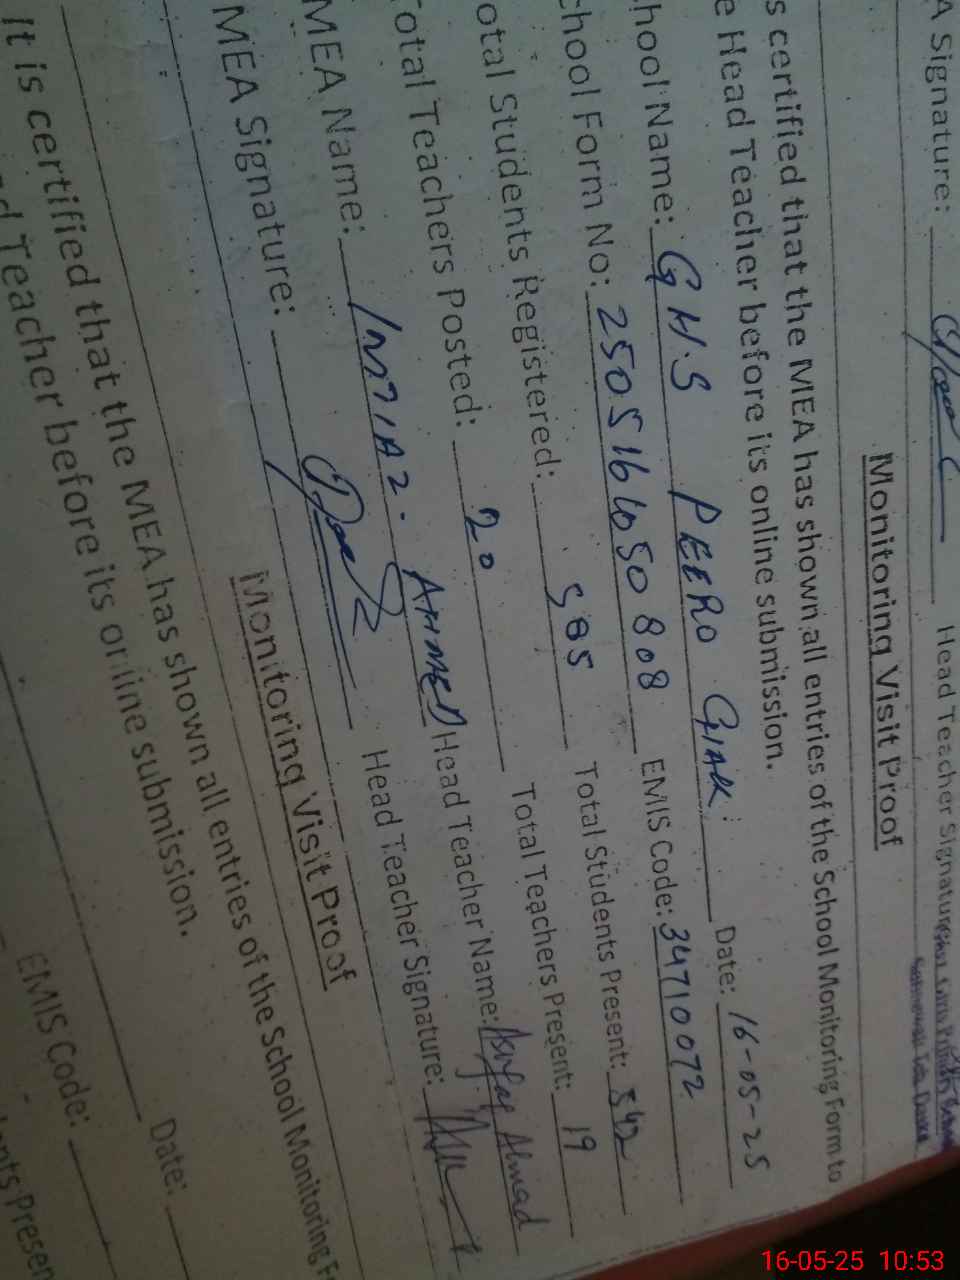 A Signature: Head Teacher Signature:
Monitoring Visit Proof
s certified that the MEA has shown all entries of the School Monitoring Form to
e Head Teacher before its online submission.
hool Name: G H.S PEERO Date: 16-05-25
chool Form No: 25051616050808 EMIS Code: 34710072
otal Students Registered: 585 Total Students Present: 542
otal Teachers Posted: 20 Total Teachers Present: 19
MEA Name: IMTIAZ. AHMED Head Teacher Name: Ashfaq Ahmad
MEA Signature: Head Teacher Signature:
Monitoring Visit Proof
It is certified that the MEA has shown all entries of the School Monitoring F
d Teacher before its online submission.
Date:
EMIS Code:
nts Presen
16-05-25 10:53